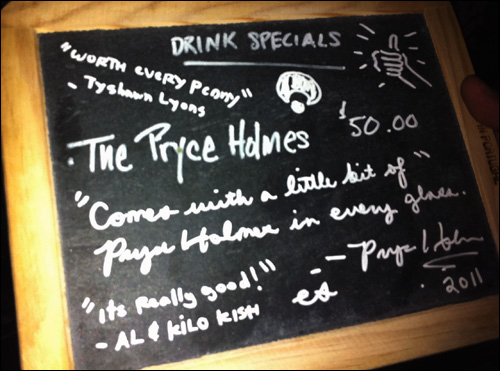 DRINK SPECIALS
"WORTH EVERY PENNY"
- Tyshawn Lyons
. The Pryce Holmes $50.00
"Comes with a little bit of"
Pryce Holmes in every glass.
-- Pryce Holmes
est
. 2011
"Its Really good!"
- AL & KILO KISH